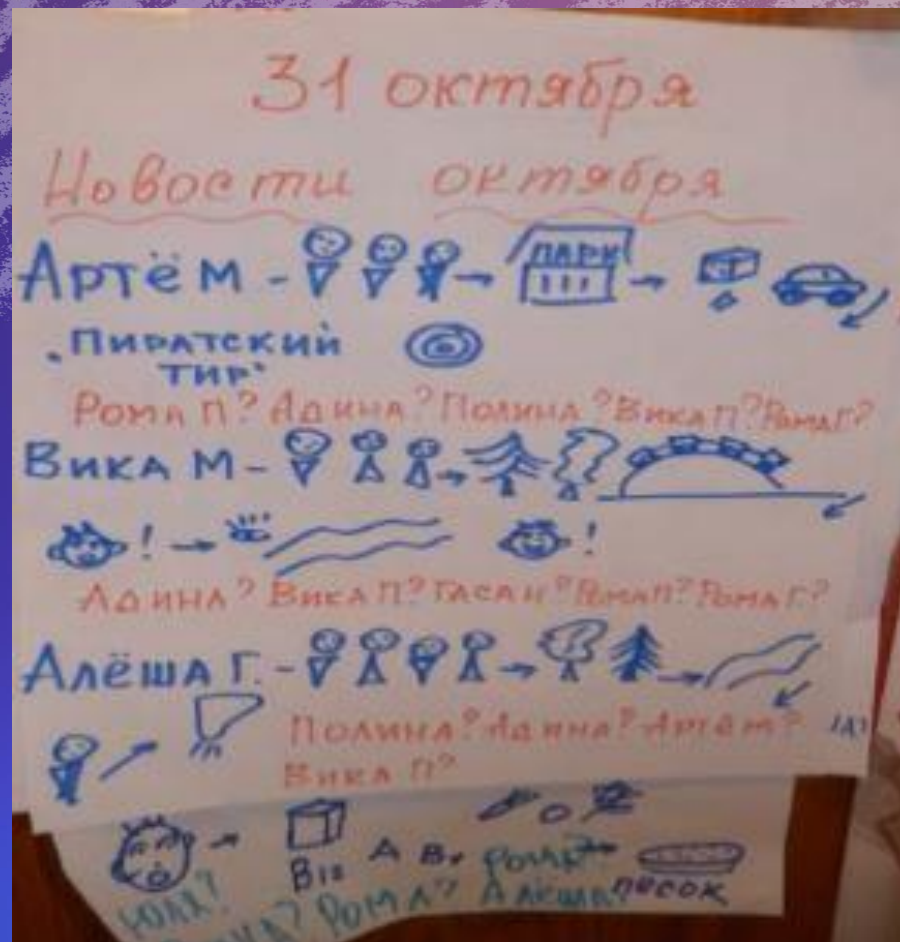 31 октября
Новости октября
Артём - ПАРК
"Пиратский
тир"
Рома П? Адина? Полина? Вика П? Рома Г?
Вика М -
! !
Адина? Вика П? Гасан? Рома П? Рома Г?
Алёша Г. -
Полина? Адина? Артём?
Вика П?
Рома?
песок
Юля?
Рома? Алёша?